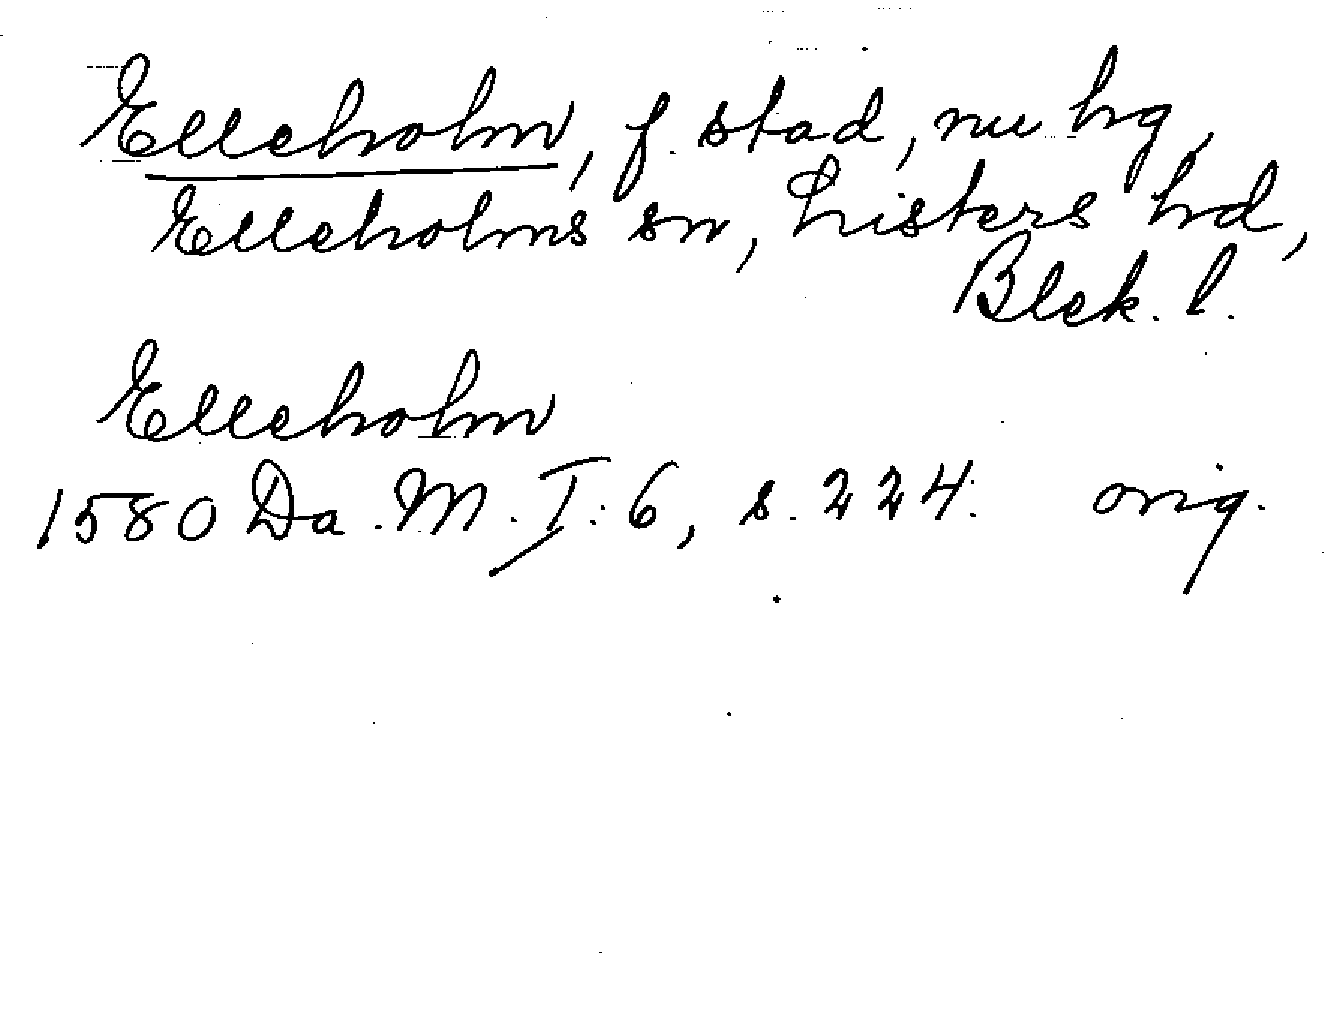 Elleholm, f. stad, nu hg,
Elleholms sn, Listers hd,
Blek. l.
Elleholm
1580 Da. M. I: 6, s. 224. orig.